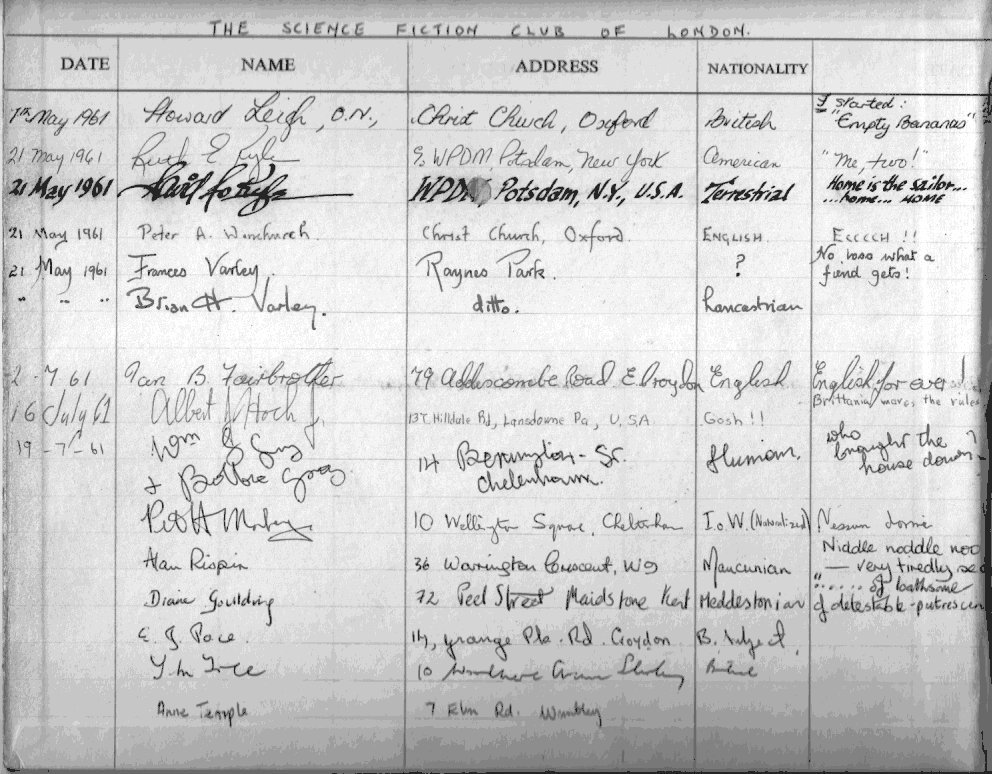 THE SCIENCE FICTION CLUB OF LONDON.
DATE NAME ADDRESS NATIONALITY
7th May 1961 Howard Leigh, Christ Church, Oxford British I started: "Empty Bananas"
21 May 1961 Ruth E Kyle % WPDM Potsdam, New York American "Me, two!"
21 May 1961 WPDM, Potsdam, N.Y., U.S.A. Terrestrial Home is the sailor... ...home... HOME
21 May 1961 Peter A. Christ Church, Oxford. ENGLISH. ECCCCH !!
21 May 1961 Frances Varley. Raynes Park. ? No what a fiend gets!
" " " Brian H. Varley. ditto. Lancastrian
2 - 7 61 Ian B. Fairbrother 79 Addiscombe Road E. Croydon English English for ever
16 July 61 Albert J. Hoch Jr. 137 Hilldale Rd, Lansdowne Pa, U.S.A Gosh!! Brittania moves the rules
19 - 7 - 61 Wm J Gray 14 St. Human. who brought the house down?
+ Gray Cheltenham.
10 Wellington Square, Cheltenham I.o.W. (Naturalized) Nessun dorme
Alan Rispin 36 Warrington Crescent, W9 Mancunian Niddle noddle noo
— very tiredly
" ...... of loathsome
Diane Goulding 72 Peel Street Maidstone Kent Meddestonian of detestable-putrescen
E. J. Pace. 14, Grange Rd. Croydon B. Subject.
10
Anne Temple 7 Elm Rd. Wembley